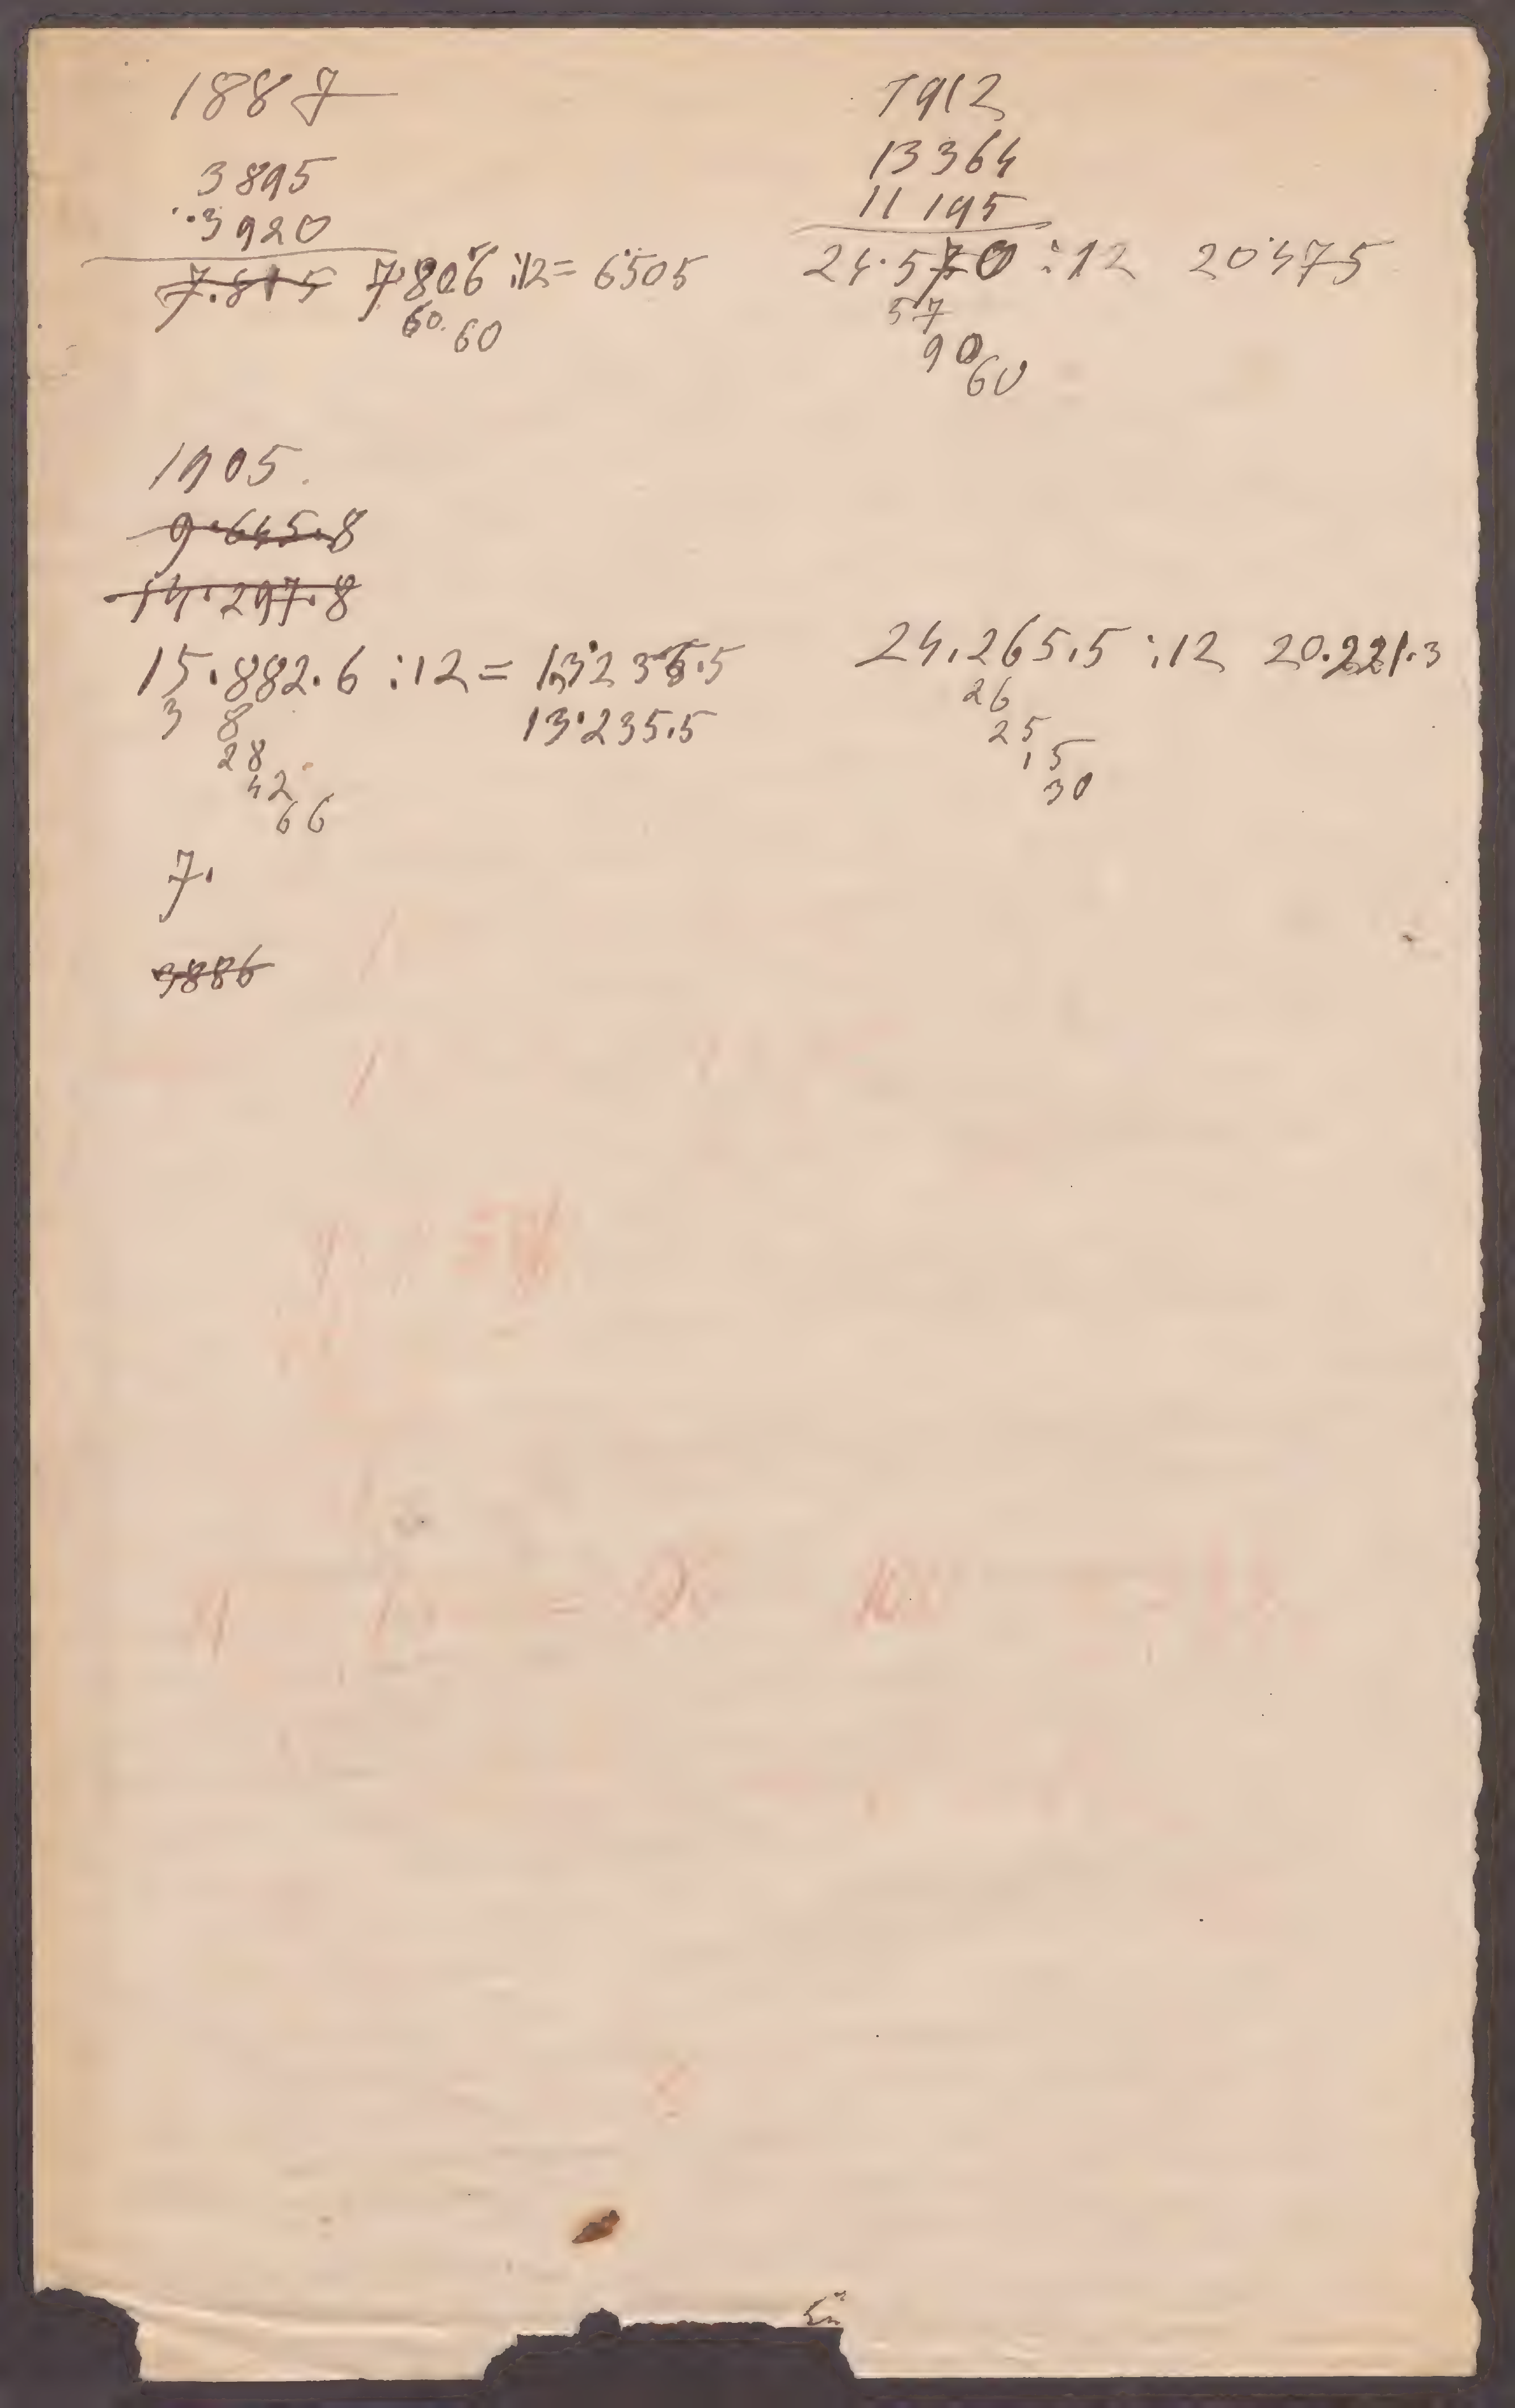 1887
3895
3920
7.815 7.806 :12= 6505
60.
60
1912
13364
11195
24.570 :12 20475
57
90
60
1905.
9.645.8
14.297.8
15.882.6 :12= 13.236.5
3 8
28
42
66
13.235.5
24.265.5 :12 20.221.3
26
25
15
30
7.
9886